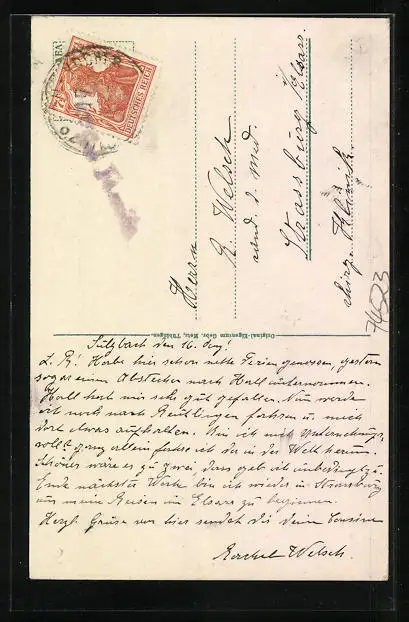 DEUTSCHES REICH
Herrn
R. Welsch
cand. d. med.
Strassburg Elsass.
chirg. Klinik.
76523
Original-Eigentum Gebr. Metz, Tübingen.
Sulzbach den 16. Aug!
L. R! Habe hier schon nette Ferien genossen, gestern
sogar einen Abstecher nach Hall unternommen.
Hall hat mir sehr gut gefallen. Nun werde
ich noch nach Reutlingen fahren u. mich
dort etwas aufhalten. Bin ich nicht Unternehmungs-
voll? ganz allein fahre ich da in der Welt herum.
Schöner wäre es zu zwei, dass geb ich unbedingt zu.
Ende nächster Woche bin ich wieder in Strassburg
um mein Reisen im Elsass zu beginnen.
Herzl. Grüsse von hier sendet dir deine Cousine
Welsch.